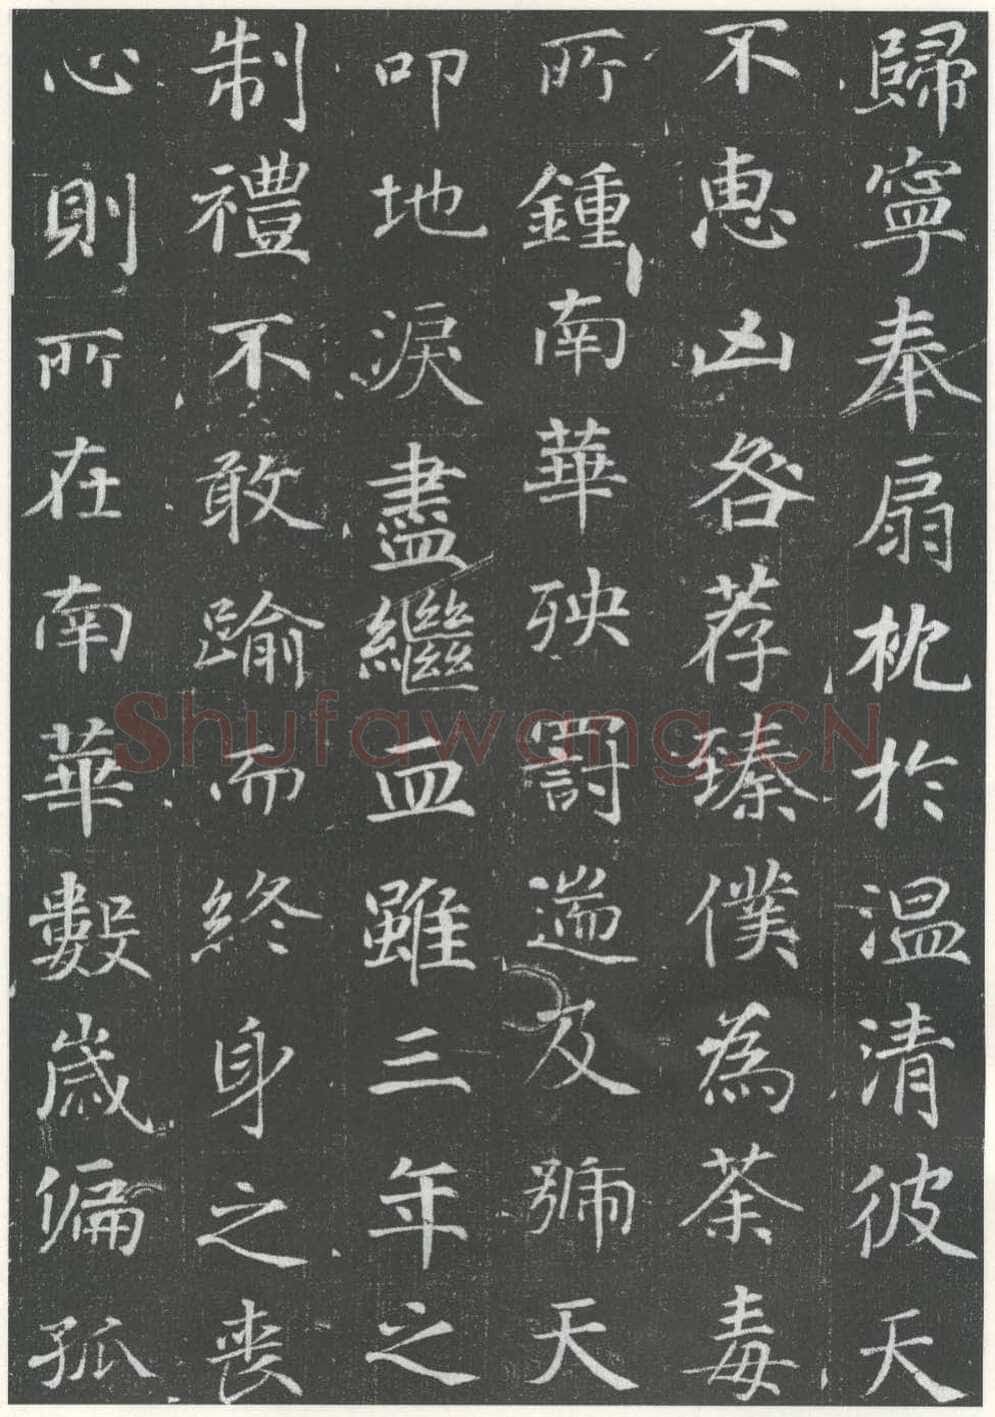 歸寧奉扇枕於温清彼天
不惠凶咎荐臻僕為荼毒
所鍾南華殃罰遄及號天
叩地淚盡繼血雖三年之
制禮不敢踰而終身之喪
心則所在南華數歲偏孤
Shufawang.CN